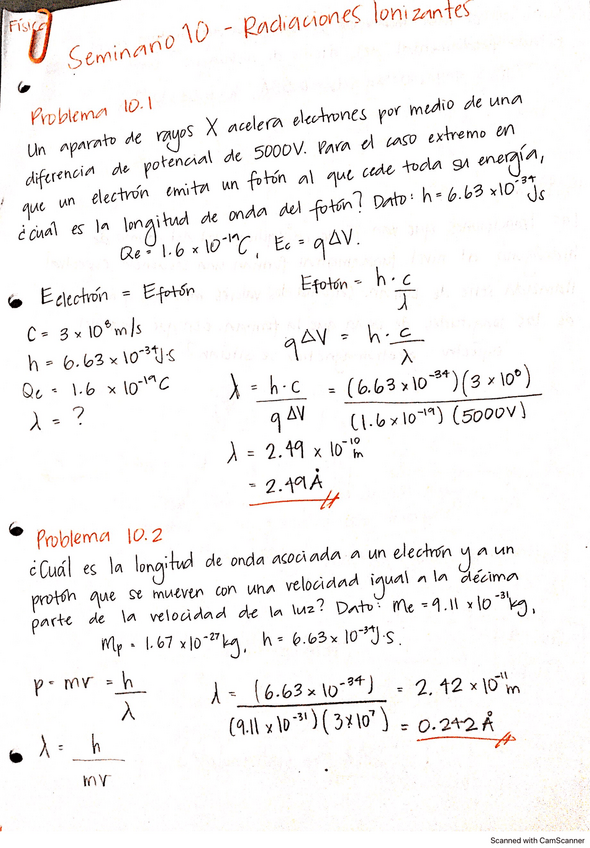 Física
Seminario 10 - Radiaciones Ionizantes
Problema 10.1
Un aparato de rayos X acelera electrones por medio de una
diferencia de potencial de 5000V. Para el caso extremo en
que un electrón emita un fotón al que cede toda su energía,
¿cuál es la longitud de onda del fotón? Dato: h = 6.63 x10⁻³⁴ Js
Qe = 1.6 x 10⁻¹⁹C, Ec = q ΔV.
Eelectrón = Efotón
Efotón = h · c / λ
C = 3 x 10⁸ m/s
h = 6.63 x 10⁻³⁴ J·S
Qe = 1.6 x 10⁻¹⁹ C
λ = ?
q ΔV = h · c / λ
λ = h · c / q ΔV = (6.63 x 10⁻³⁴)(3 x 10⁸) / (1.6 x 10⁻¹⁹) (5000V)
λ = 2.49 x 10⁻¹⁰ m
= 2.49 Å
Problema 10.2
¿Cuál es la longitud de onda asociada a un electrón y a un
protón que se mueven con una velocidad igual a la décima
parte de la velocidad de la luz? Dato: Me = 9.11 x 10⁻³¹ kg,
Mp = 1.67 x10⁻²⁷ kg, h = 6.63 x 10⁻³⁴ J·S.
p = mv = h / λ
λ = h / mv
λ = (6.63 x 10⁻³⁴) / (9.11 x 10⁻³¹)(3x10⁷) = 2.42 x 10⁻¹¹ m
= 0.242 Å
Scanned with CamScanner